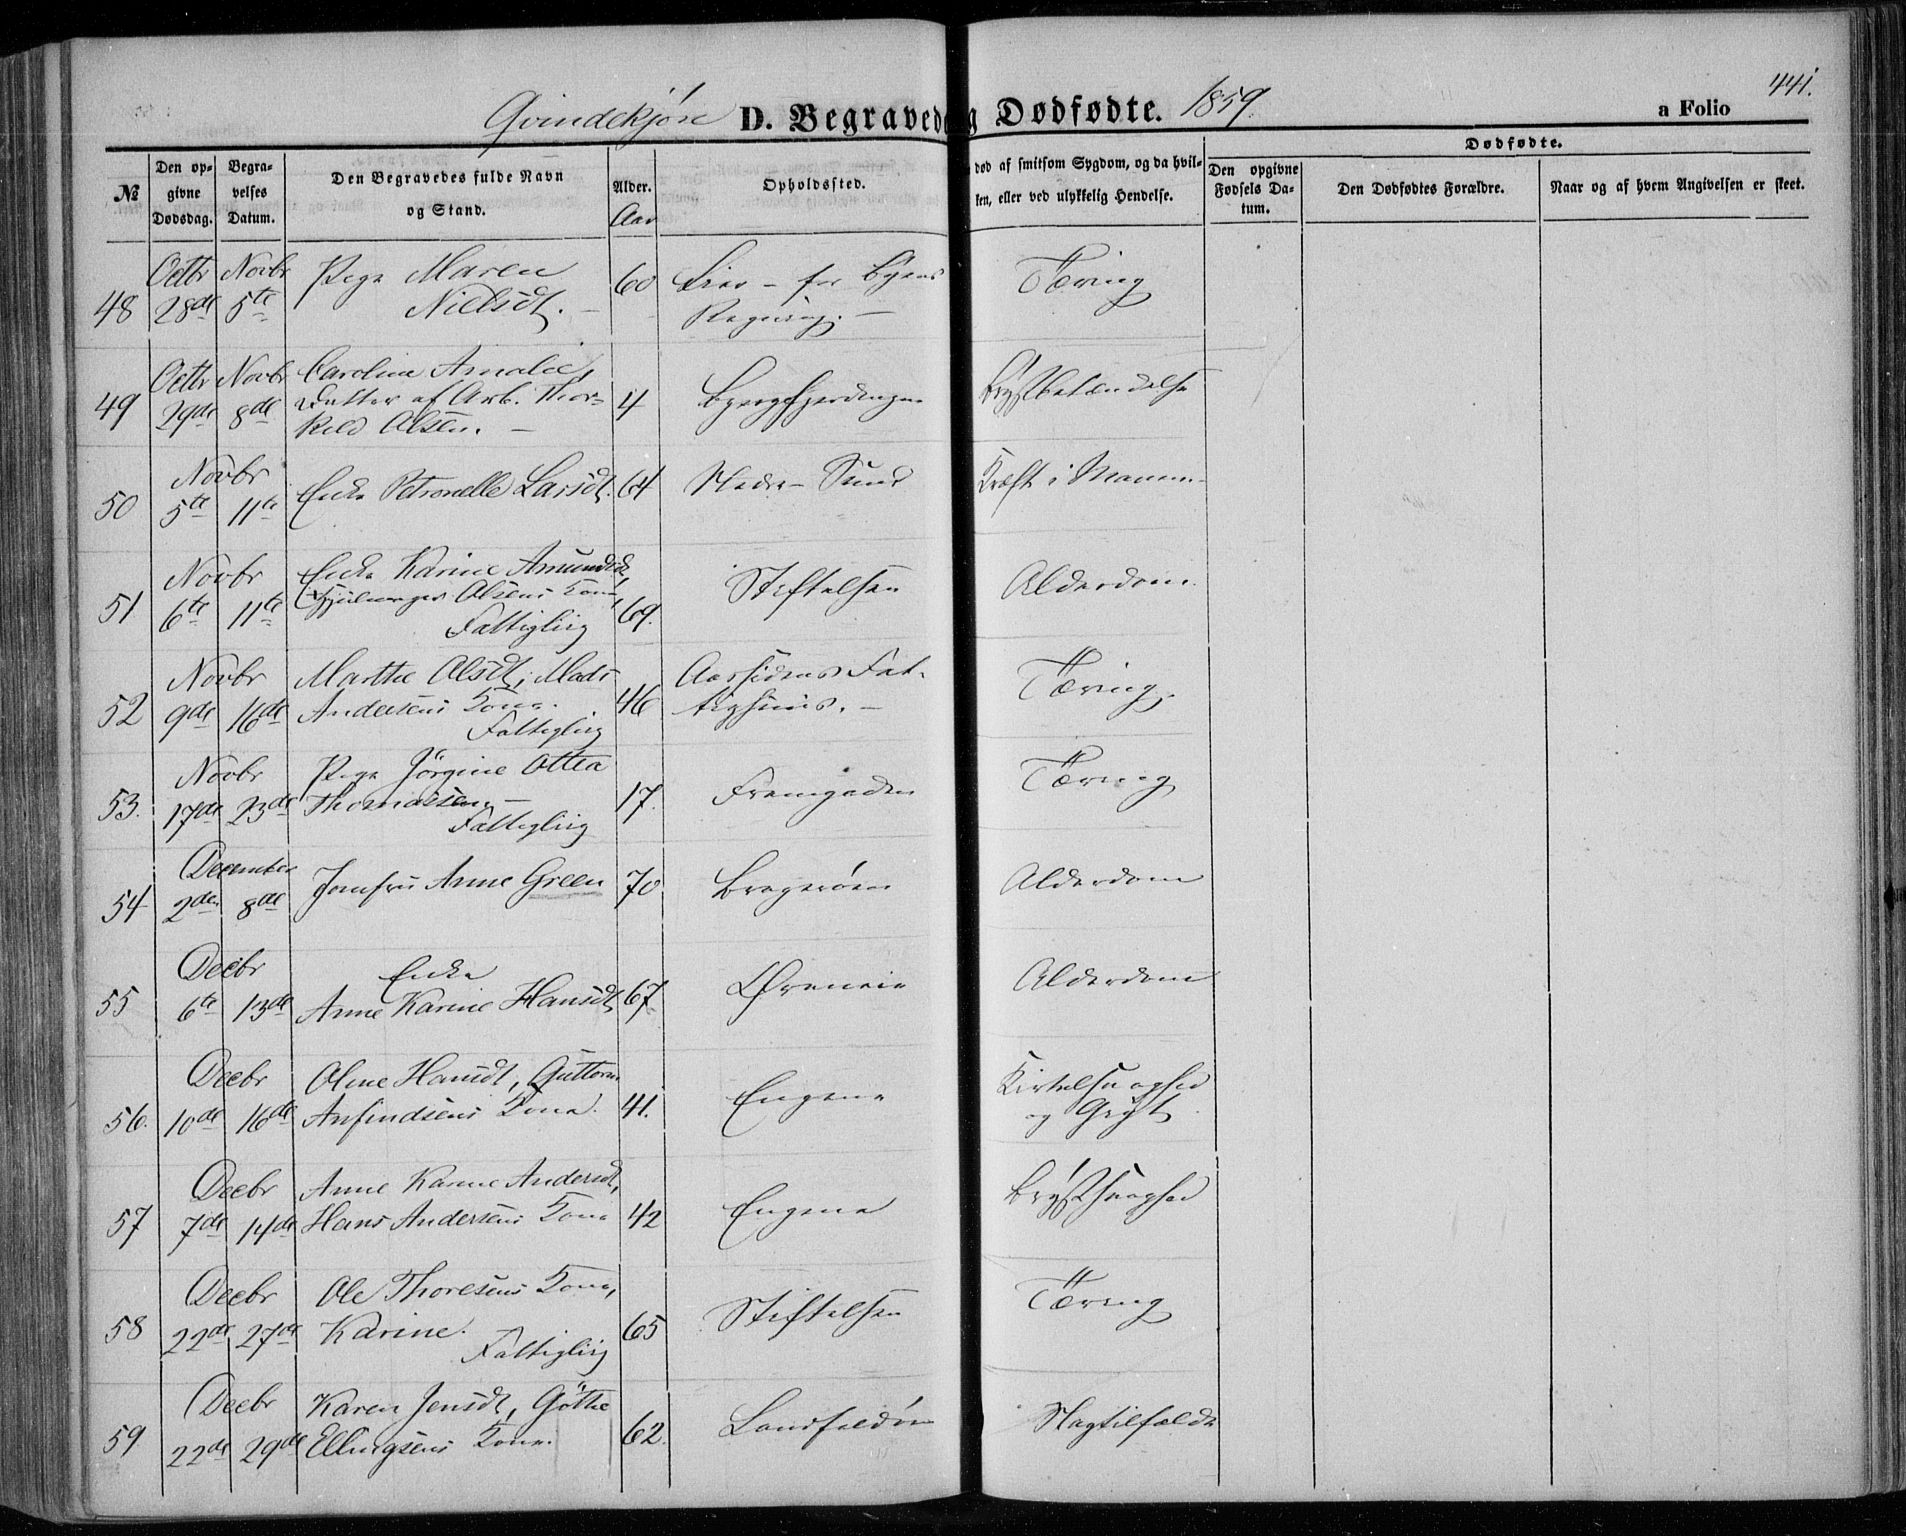 441.
Qvindekjøn D. Begravede og Dødfødte. 1859. a Folio
№
Den op-
givne
Dødsdag.
Begra-
velses
Datum.
Den Begravedes fulde Navn
og Stand.
Alder.
Aar
Opholdssted.
død af smitsom Sygdom, og da hvil-
ken, eller ved ulykkelig Hendelse.
Dødfødte.
Den opgivne
Fødsels Da-
tum.
Den Dødfødtes Forældre.
Naar og af hvem Angivelsen er skeet.
48 Octbr 28de Novbr 5te Pige Maren
Nielsdt. 60 Lier - for Byens
Regning. Tæring
49 Octbr 29de Novbr 8de Caroline Amalie,
Datter af Arb. Thor-
kild Olsen. 4 Bergfjerdingen Brystbetændelse
50 Novbr 5te 11te Enke Petronelle Larsdt. 64 Nedre Sund Kræft i Maven
51 Novbr 6te 11te Enke Karine Amundsdt.
Olsens Kone
Fattiglig 69. Stiftelsen Alderdom
52 Novbr 9de 16de Marthe Olsdt, Mads
Andersens Kone.
Fattiglig 46 Aassidens Fat-
tighuus. Tæring.
53. Novbr 17de 23de Pige Jörgine Ottea
Thomassen.
Fattiglig 17. Fremgaden Tæring
54 December 2den 8de Jomfru Anne Green 70 Bragerøen Alderdom
55 Decbr 6te 13de Enke
Anne Karine Hansdt 67. Øreneie Alderdom
56. Decbr 10de 16de Oline Hansdt, Guttorm
Anfindsens Kone. 41. Engene Kirtelsvaghed
og Gigt
57 Decbr 7de 14de Anne Karine Andersdt,
Hans Andersens Kone 42 Engene Brystsvaghed
58 Decbr 22de 27de Ole Thoresens Kone,
Karine.
Fattiglig 65 Stiftelsen Tæring
59 Decbr 22de 29de Karen Jensdt, Göthe
Ellingsens Kone. 62. Landfaldøen Slagtilfælde